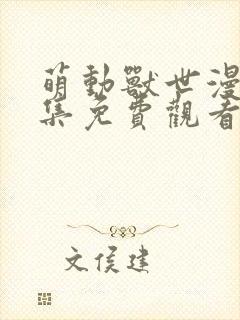 萌動獸世漫
集免費觀看
文侯建